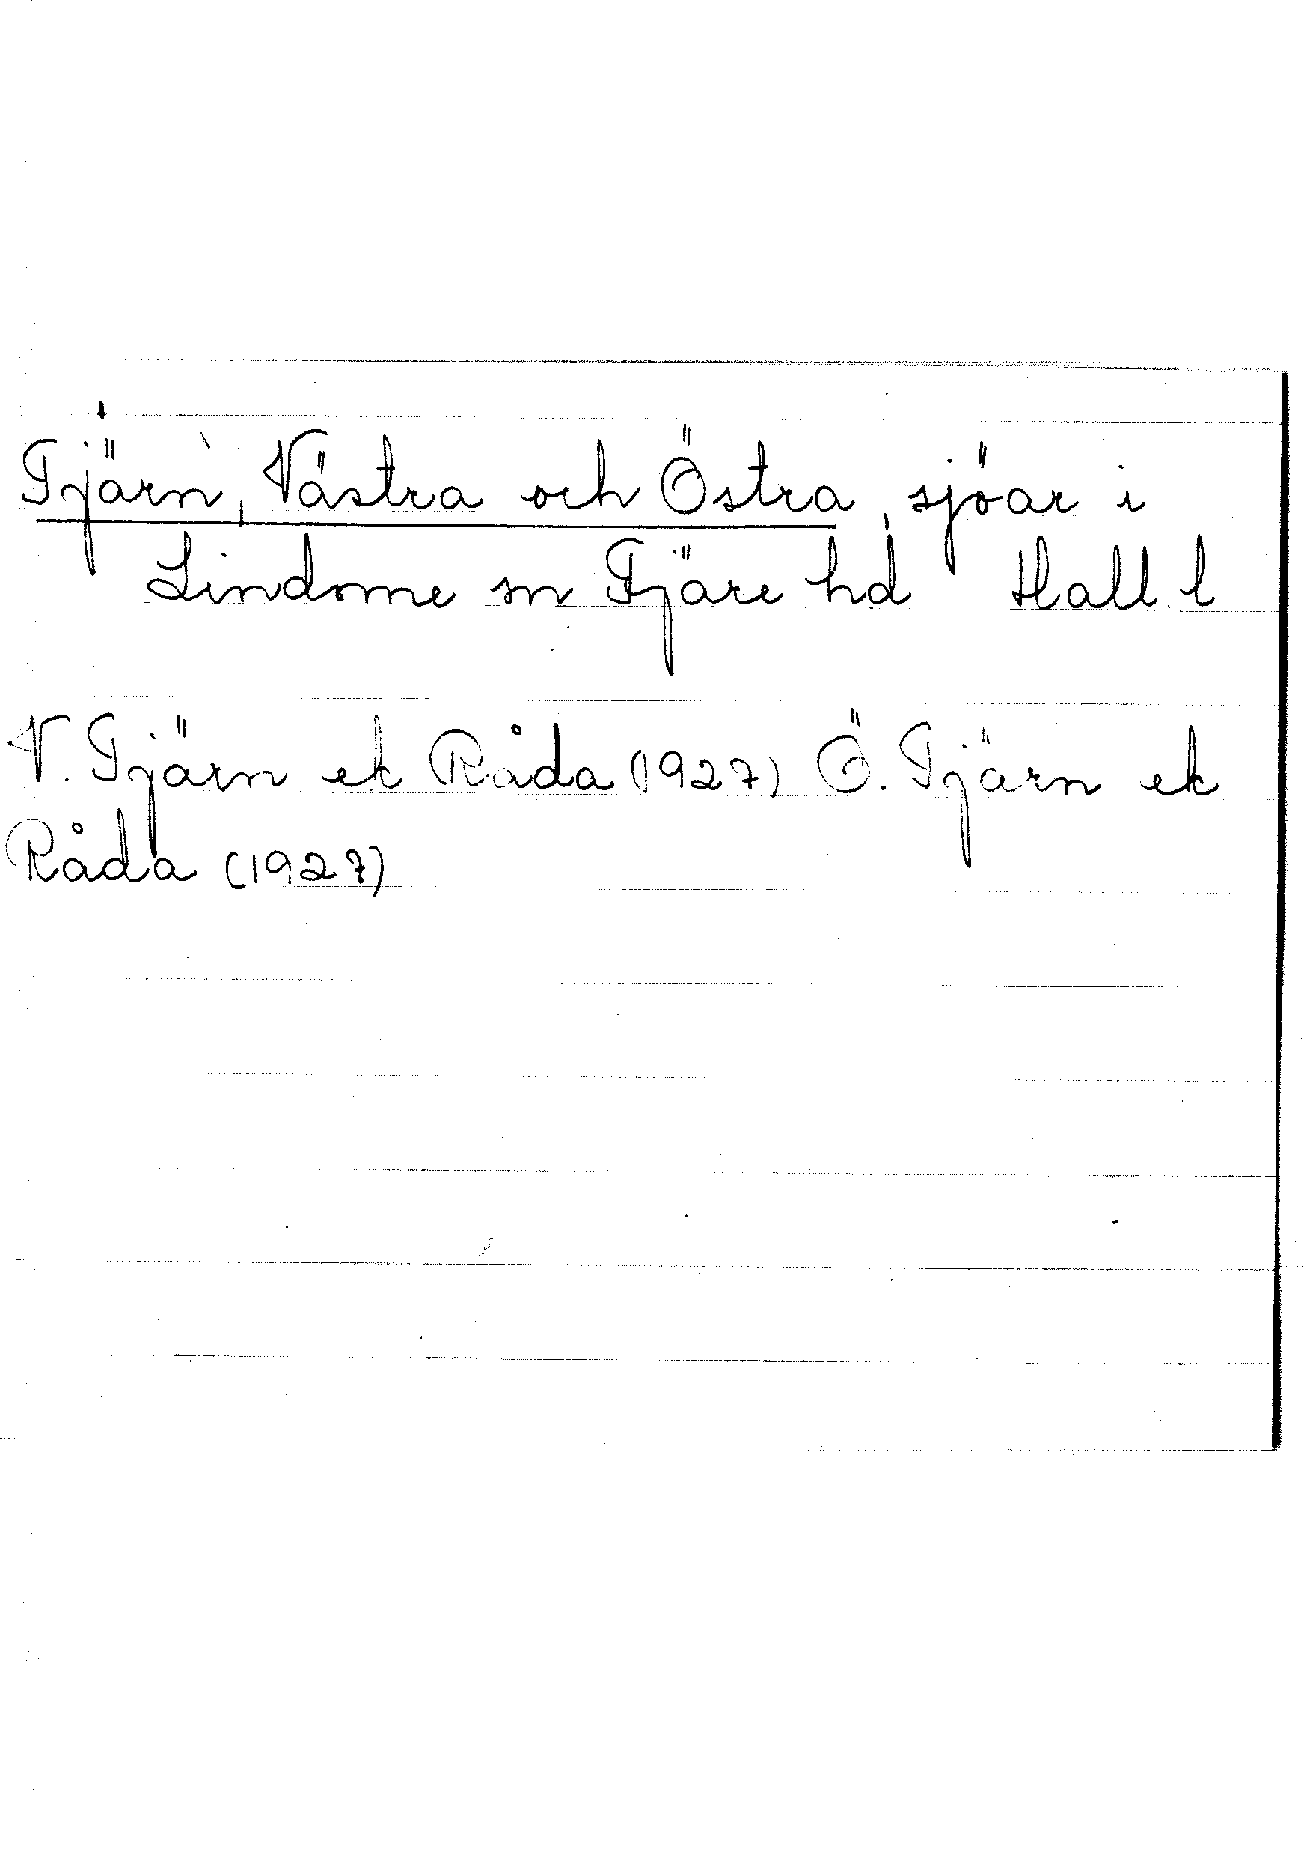 Tjärn, Västra och Östra, sjöar i
Lindome sn Fjäre hd Hall l
V. Tjärn ek Råda (1927) Ö. Tjärn ek
Råda (1927)